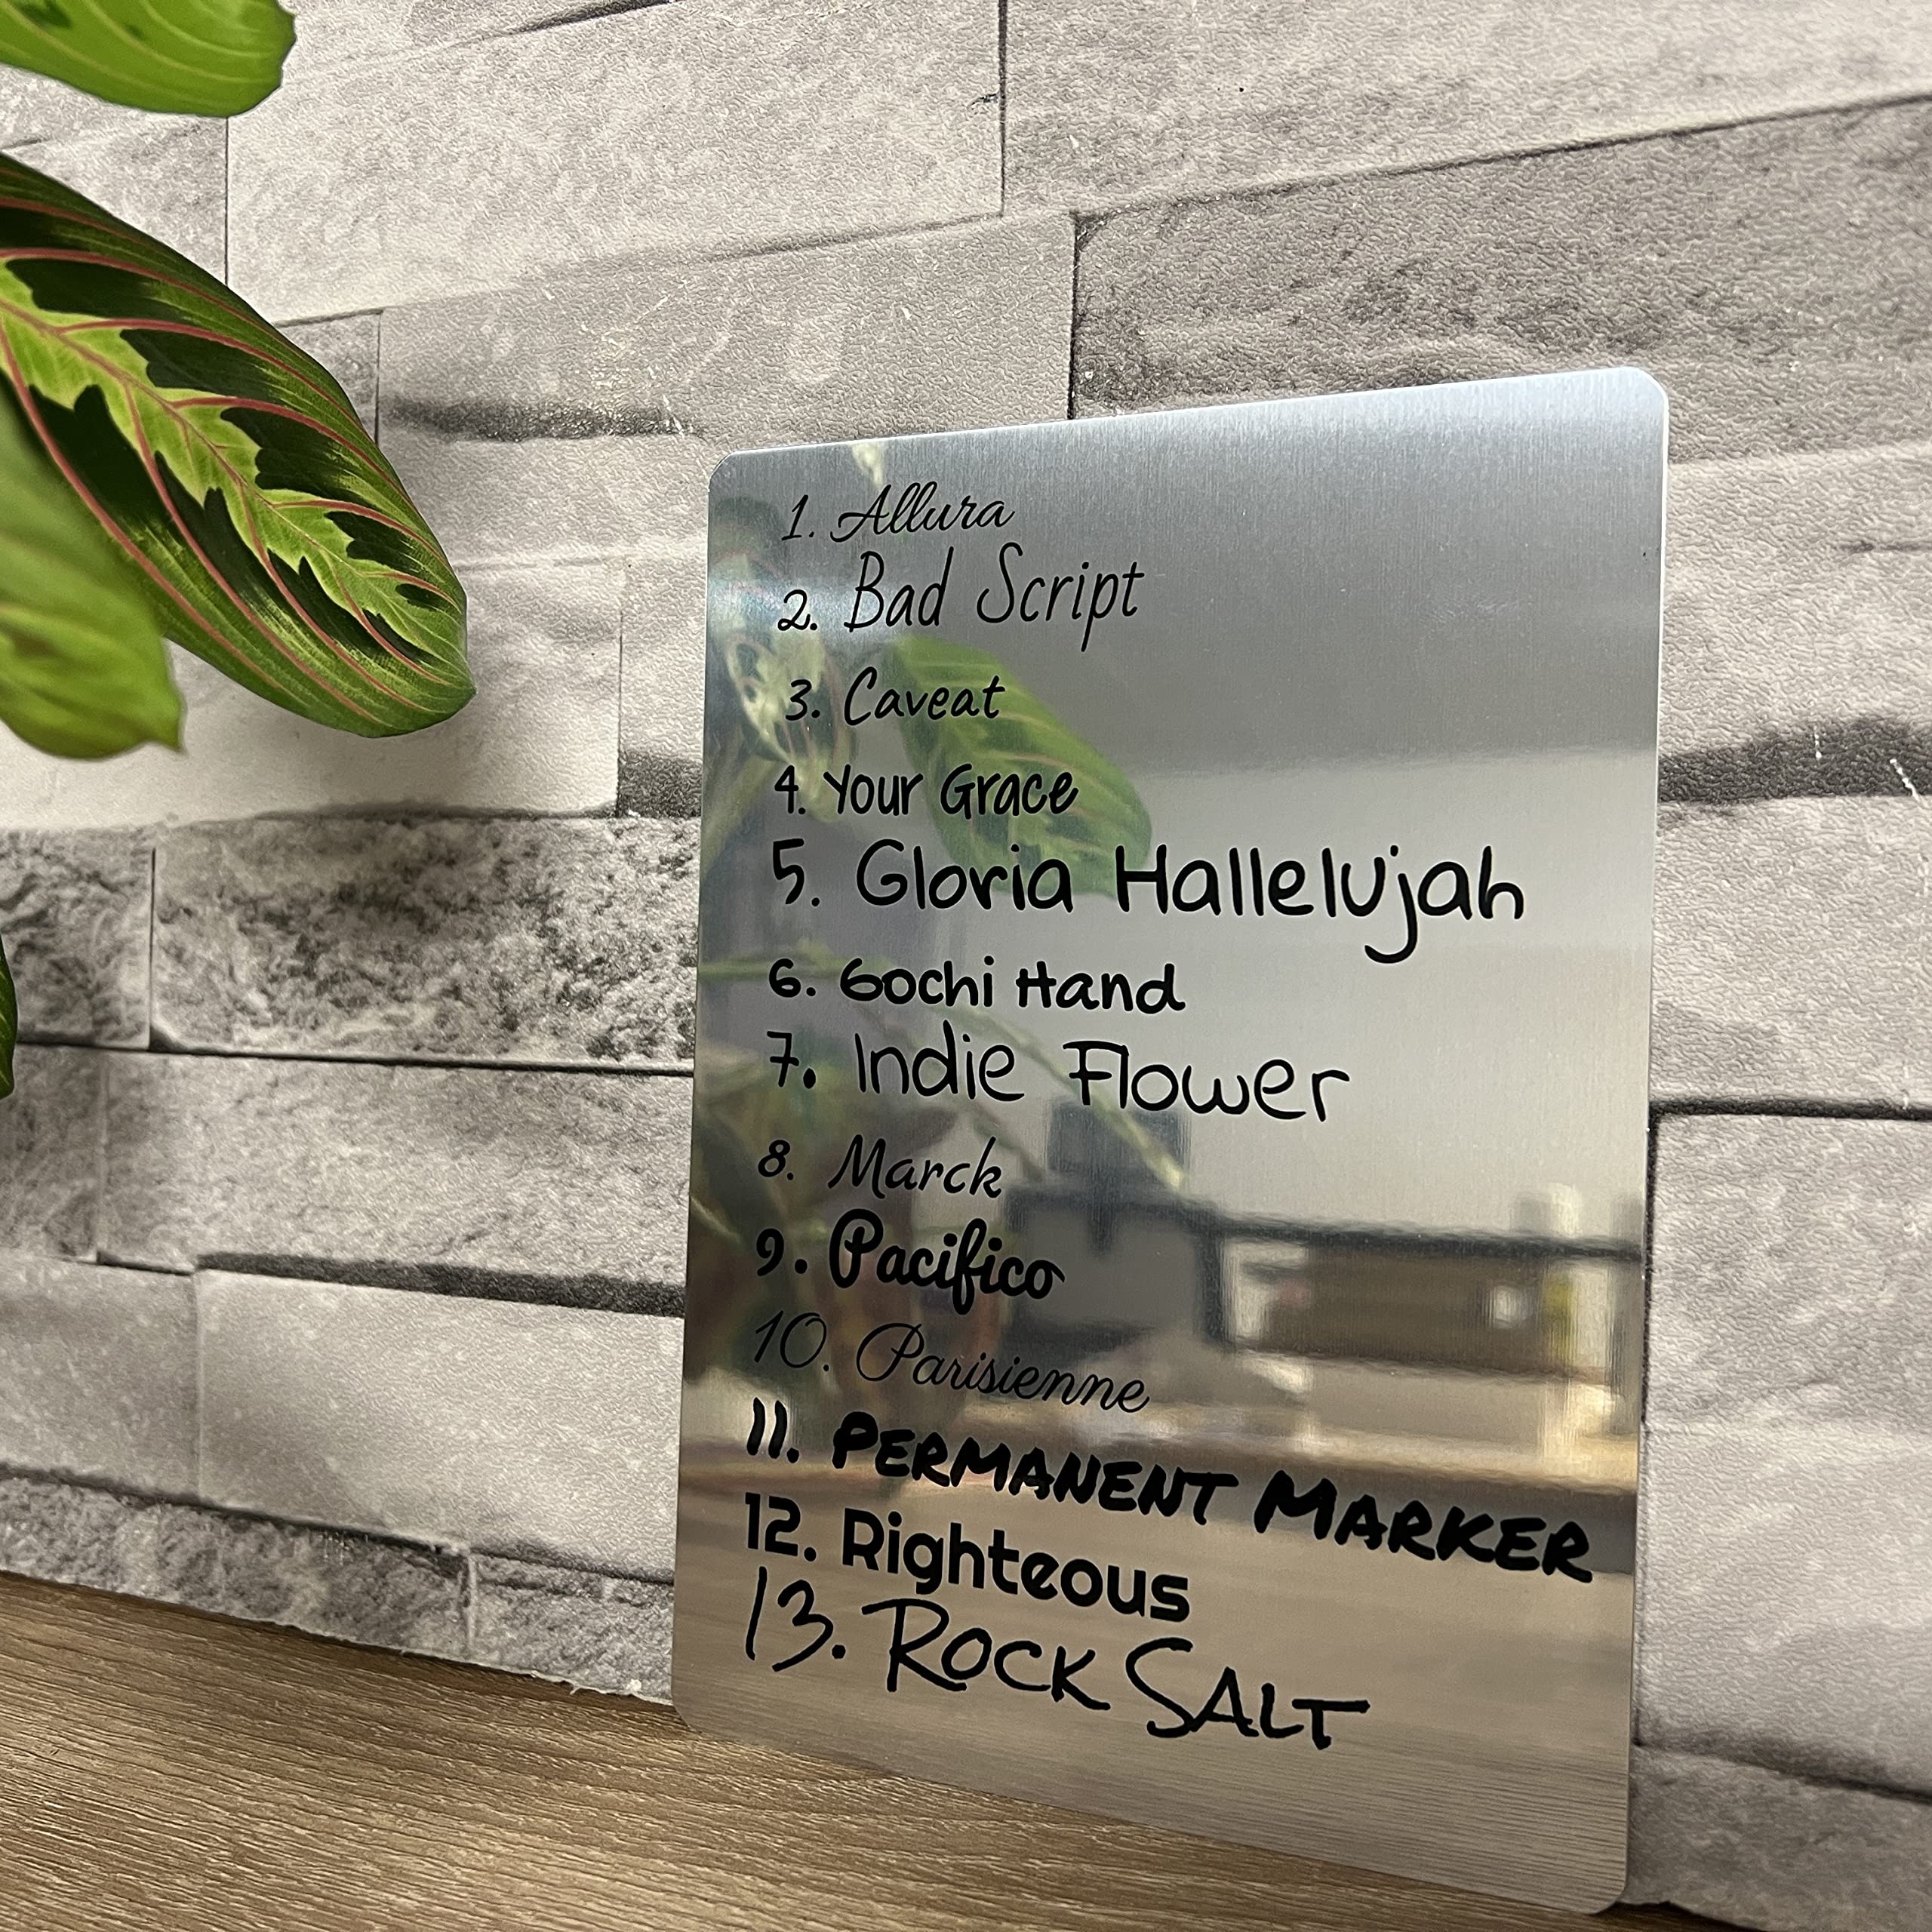 1. Allura
2. Bad Script
3. Caveat
4. Your Grace
5. Gloria Hallelujah
6. Gochi Hand
7. Indie Flower
8. Marck
9. Pacifico
10. Parisienne
11. PERMANENT MARKER
12. Righteous
13. ROCK SALT